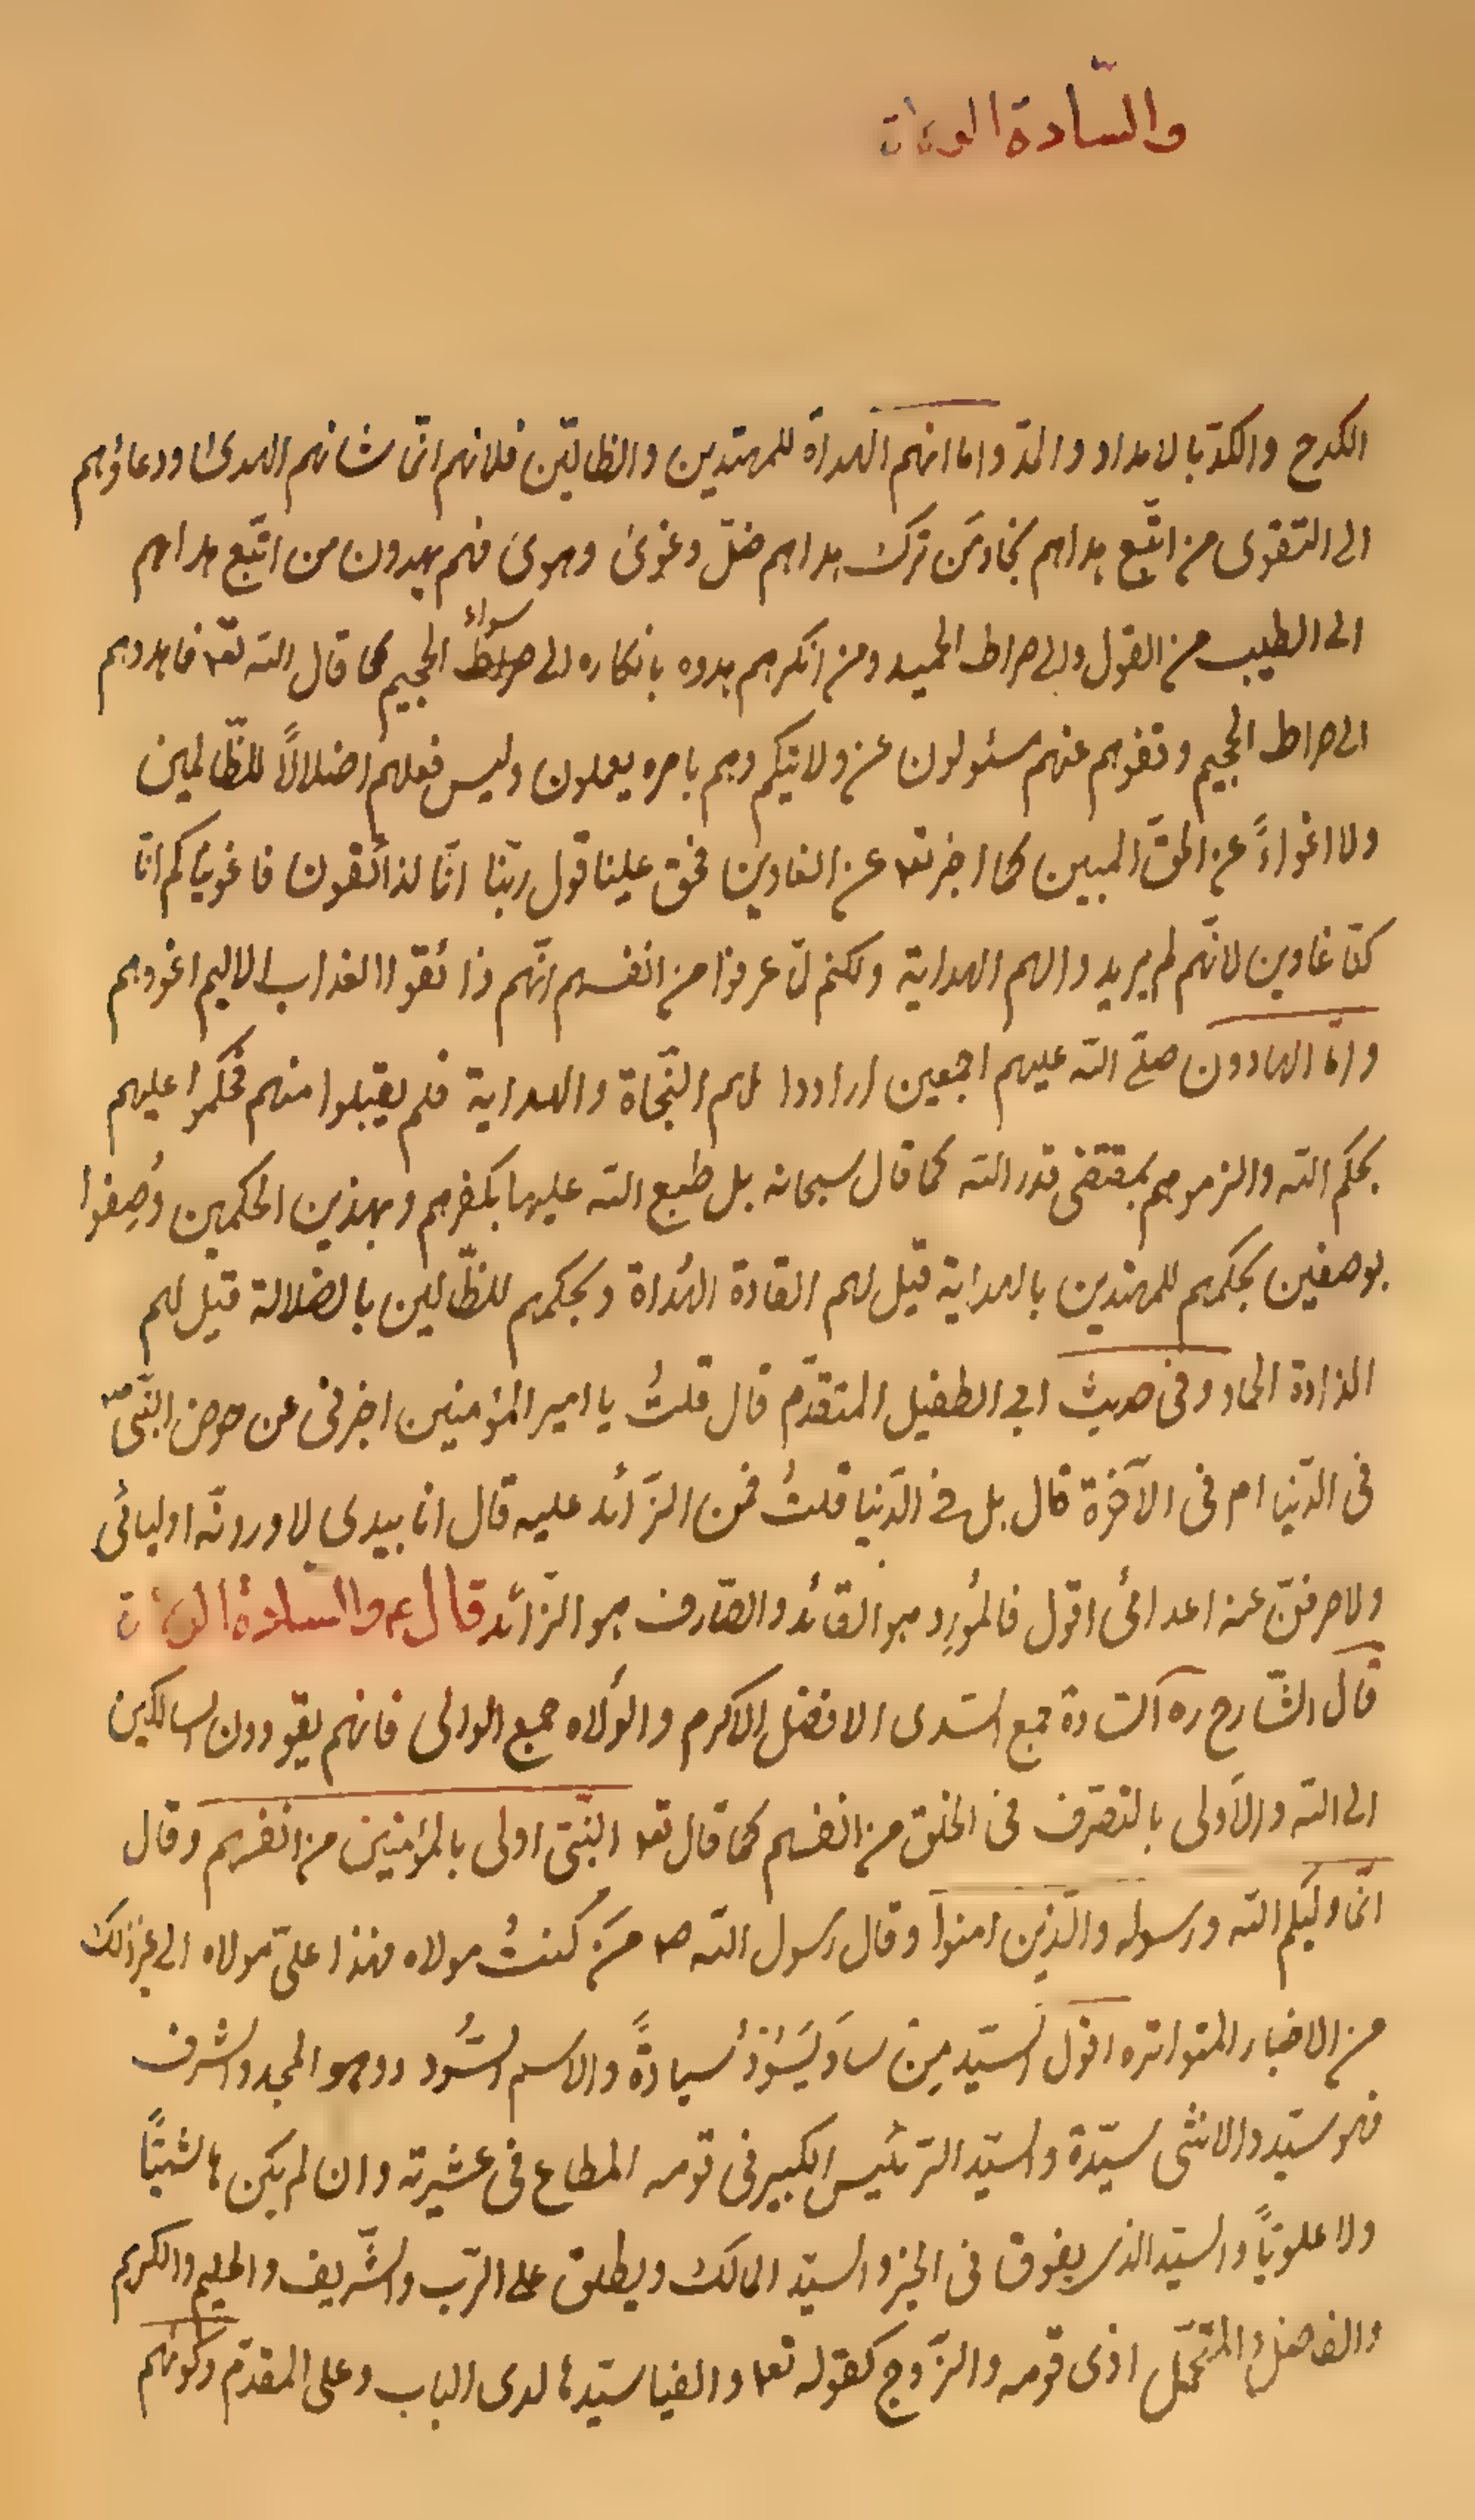 والسّادة الولاة
الكدح والكدّ بالامداد والمدّ واما انهم الهداة للمهتدين والظالمين فلانهم انّ شانهم الهدى ودعاؤهم
الى التقوى من اتّبع هداهم نجا ومَن ترك هداهم ضلّ وغوى وهوى فهم يهدون من اتّبع هداهم
الى الطيب من القول والى صراط الحميد ومن انكرهم هدوه بانكاره الى سواءِ الجحيم كما قال الله تعـ فاهدوهم
الى صراط الجحيم وقفوهم انهم مسئولون عن ولايتكم وهم بامره يعملون وليس فعلهم اضلالاً للظّالمين
ولا اغواءً عن الحقّ المبين كما اخبر تعـ عن الغاوين فحق علينا قول ربّنا انّا لذائقون فاغويناكم انّا
كنّا غاوين لانّهم لم يريدوا لهم الهداية ولكنهم لمّا عرفوا من انفسهم انّهم ذائقوا العذاب الاليم اغووهم
وامّا الهادون صلّى الله عليهم اجمعين ارادوا لهم النّجاة والهداية فلم يقبلوا منهم فحكموا عليهم
بحكم الله والزموهم بمقتضى قدر الله كما قال سبحانه بل طبع الله عليها بكفرهم وبهذين الحكمين وُصِفوا
بوصفين بحكمهم للمهتدين بالهداية قيل لهم القادة الهُداة وبحكمهم للظّالمين بالضلالة قيل لهم
الذادة الحماة وفى حديث ابى الطفيل المتقدّم قال قلتُ يا امير المؤمنين اخبرنى عن حوض النّبىّ ص
فى الدّنيا ام فى الآخرة قال بل فى الدّنيا قلتُ فمن الزّائد عليه قال انا بيدى لاوردنّه اوليائى
ولاصرفنّ عنه اعدائى اقول فالمُورِد هو القائد والصّارف هو الزّائد قال ع والسّادة الولاة
قال الشّارح ره السّادة جمع السّيد وهو الافضل الاكرم والوُلاه جمع الوالى فانهم يقودون السالكين
الى الله والاَولى بالتصرّف فى الخلق من انفسهم كما قال تعـ النّبىّ اولى بالمؤمنين من انفسهم وقال
انّما وليّكم الله ورسوله والّذين امنوا وقال رسول الله ص مَن كنتُ مولاه فهذا علىّ مولاه الى غير ذلك
من الاخبار المتواتره اقول السّيد مِن سادَ يَسُوْدُ سيادةً والاسم السُّودد وهو المجد والشرف
فهو سيّد والانثى سيّدة والسيّد الرّئيس الكبير فى قومه المطاع فى عشيرته وان لم يكن هاشميًّا
ولا علويًّا والسيّد الذى يفوق فى الخير والسيّد المالك ويطلق على الرّب والشّريف والحليم والكريم
والفاضل والمتحمّل اذى قومه والزّوج كقوله تعـ والفيا سيّدها لدى الباب وعلى المقدّم وكونهم